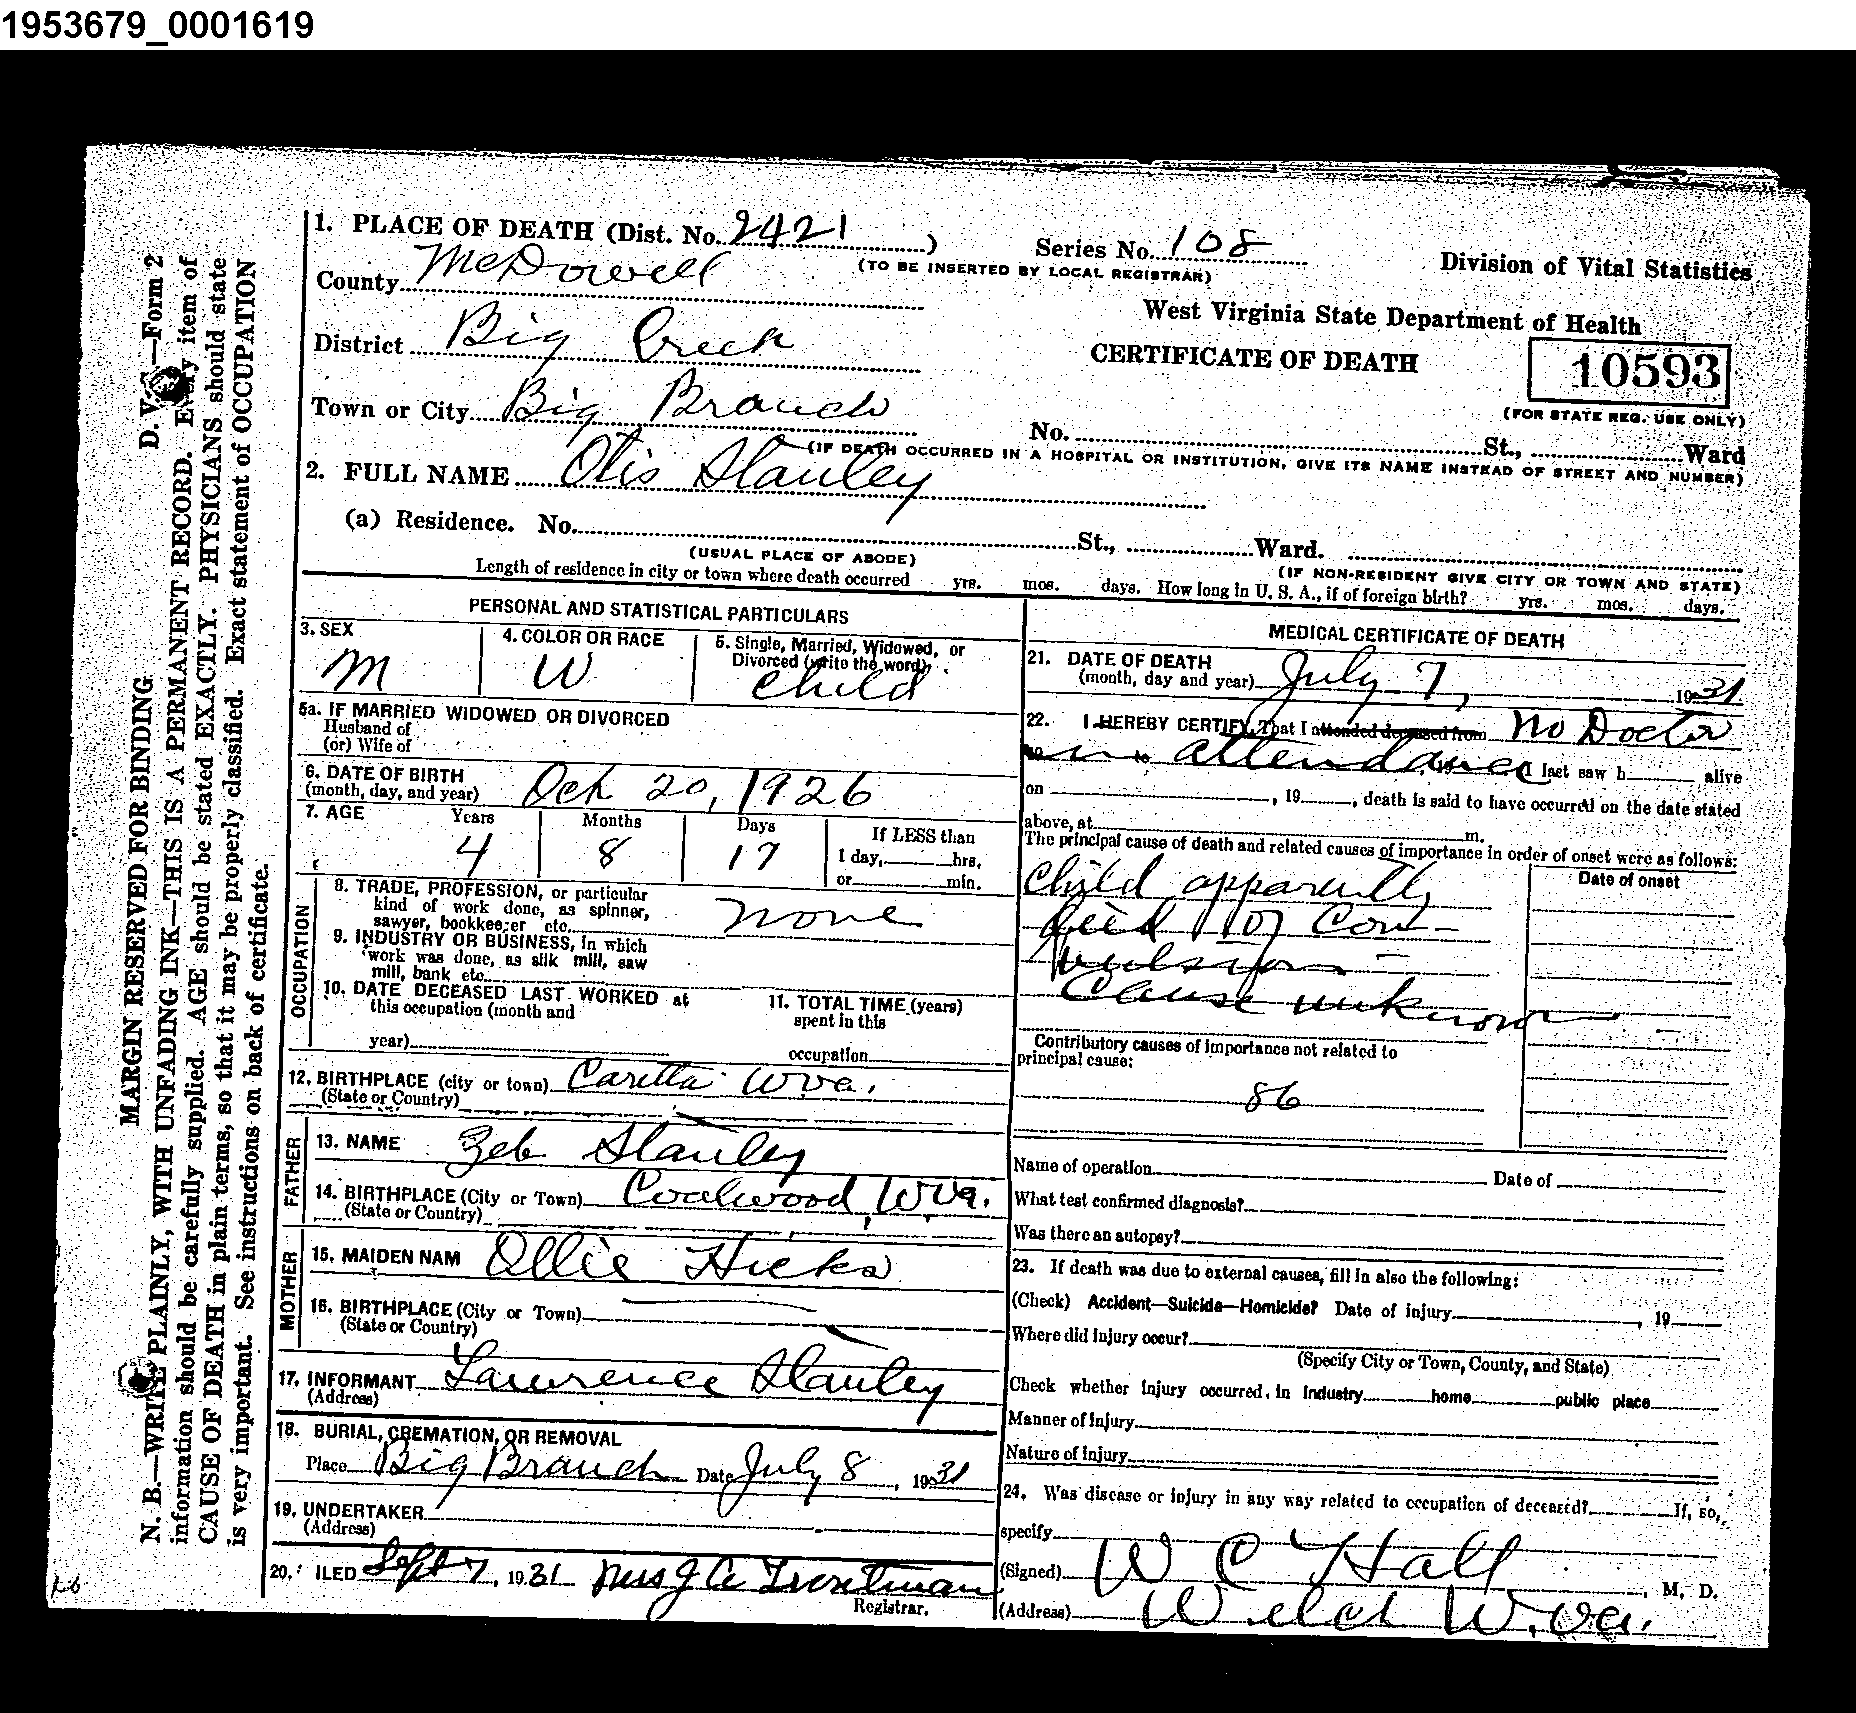 1953679_0001619
1. PLACE OF DEATH (Dist. No. 2421 )
Series No. 108
(TO BE INSERTED BY LOCAL REGISTRAR)
Division of Vital Statistics
County McDowell
West Virginia State Department of Health
District Big Creek
CERTIFICATE OF DEATH
10593
(FOR STATE REG. USE ONLY)
Town or City Big Branch
No. St., Ward
(IF DEATH OCCURRED IN A HOSPITAL OR INSTITUTION, GIVE ITS NAME INSTEAD OF STREET AND NUMBER)
2. FULL NAME Otis Stanley
(a) Residence. No. St., Ward.
(USUAL PLACE OF ABODE)
(IF NON-RESIDENT GIVE CITY OR TOWN AND STATE)
Length of residence in city or town where death occurred yrs. mos. days. How long in U. S. A., if of foreign birth? yrs. mos. days.
PERSONAL AND STATISTICAL PARTICULARS
3. SEX
M
4. COLOR OR RACE
W
5. Single, Married, Widowed, or
Divorced (write the word)
Child
5a. IF MARRIED WIDOWED OR DIVORCED
Husband of
(or) Wife of
6. DATE OF BIRTH
(month, day, and year) Oct 20, 1926
7. AGE Years Months Days If LESS than
4 8 17 1 day, hrs.
or min.
OCCUPATION
8. TRADE, PROFESSION, or particular
kind of work done, as spinner,
sawyer, bookkeeper etc. none
9. INDUSTRY OR BUSINESS, in which
work was done, as silk mill, saw
mill, bank etc.
10. DATE DECEASED LAST WORKED at
this occupation (month and
year)
11. TOTAL TIME (years)
spent in this
occupation
12. BIRTHPLACE (city or town) Caretta W Va.
(State or Country)
FATHER
13. NAME Zeb Stanley
14. BIRTHPLACE (City or Town) Coalwood, W. Va.
(State or Country)
MOTHER
15. MAIDEN NAM Ollie Hicks
16. BIRTHPLACE (City or Town)
(State or Country)
17. INFORMANT Lawrence Stanley
(Address)
18. BURIAL, CREMATION, OR REMOVAL
Place Big Branch Date July 8, 1931
19. UNDERTAKER
(Address)
20. ILED Sept 7, 1931 Mrs J C Troutman
Registrar.
MEDICAL CERTIFICATE OF DEATH
21. DATE OF DEATH
(month, day and year) July 7, 1931
22. I HEREBY CERTIFY, That I attended deceased from No Doctor
in attendance I last saw h alive
on , 19 , death is said to have occurred on the date stated
above, at m.
The principal cause of death and related causes of importance in order of onset were as follows:
Date of onset
Child apparently
died of Con-
vulsions -
Cause unknown
Contributory causes of importance not related to
principal cause:
86
Name of operation Date of
What test confirmed diagnosis?
Was there an autopsy?
23. If death was due to external causes, fill in also the following:
(Check) Accident—Suicide—Homicide? Date of injury , 19
Where did injury occur?
(Specify City or Town, County, and State)
Check whether injury occurred, in industry home public place
Manner of injury
Nature of injury
24. Was disease or injury in any way related to occupation of deceased? If, so,
specify
(Signed) W C Hall , M. D.
(Address) Welch W. Va.
D. V. —Form 2
MARGIN RESERVED FOR BINDING
N. B.—WRITE PLAINLY, WITH UNFADING INK—THIS IS A PERMANENT RECORD. Every item of
information should be carefully supplied. AGE should be stated EXACTLY. PHYSICIANS should state
CAUSE OF DEATH in plain terms, so that it may be properly classified. Exact statement of OCCUPATION
is very important. See instructions on back of certificate.